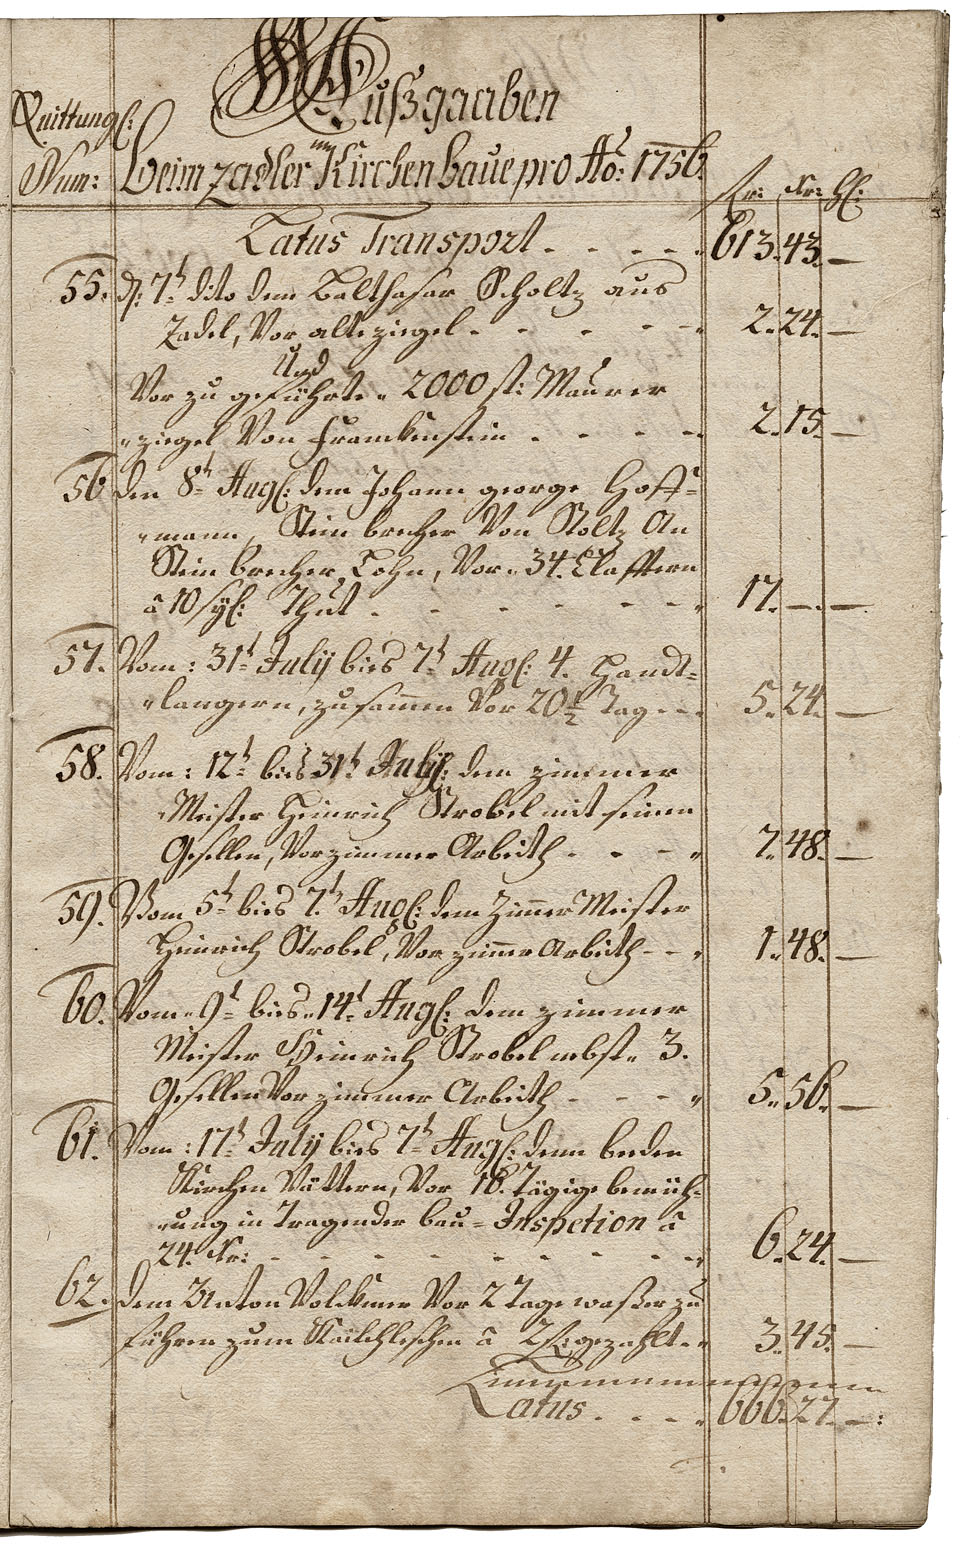 Außgaaben
Quittungs:
Num: beim Zadler Kirchen baue pro Ao: 1756.
kr: hl:
Latus Transport - - - - 613. 43. —
55. d: 7t dito dem Balthasar Scholtz aus
Zadel, Vor alte ziegel - - - - - 2. 24. —
Und
Vor zu geführte 2000 st: Maurer
ziegel Von Franckenstein - - - - 2. 15. —
56 den 8t Aug: dem Johann george Hoff=
mann, Stein brecher Von Stoltz An
Stein brecher Lohn, Vor 34. Clafftern
â 10 sgl: Thut - - - - - - 17. — . —
57. Vom: 31t July bies 7t Aug: 4. Handt=
langern, zusammen Vor 20 1/2 Tag - - 5. 24. —
58. Vom: 12t bies 31t July: dem zimmer
Meister Heinrich Strobel mit seinen
Gesellen, Vor zimmer Arbeith - - - 7. 48. —
59. Vom 5t bies 7t Aug: dem Zimer Meister
Heinrich Strobel, Vor zimer Arbeith - - 1. 48. —
60. Vom 9t bies 14t Aug: dem zimmer
Meister Heinrich Strobel nebst 3.
Gesellen Vor zimmer Arbeith - - - 5. 56. —
61. Vom: 17t July bies 7t Aug: denen beden
Kirchen Vättern, Vor 16. Tägige bemüh=
ung in Tragender bau= Inspetion â
24. Kr: - - - - - - - - 6. 24. —
62. dem Anton Volckmer Vor 2 Tage waßer zu
führen zum Kalchleschen â gezahlt 3. 45. —
Latus - - - - 666. 27. —: